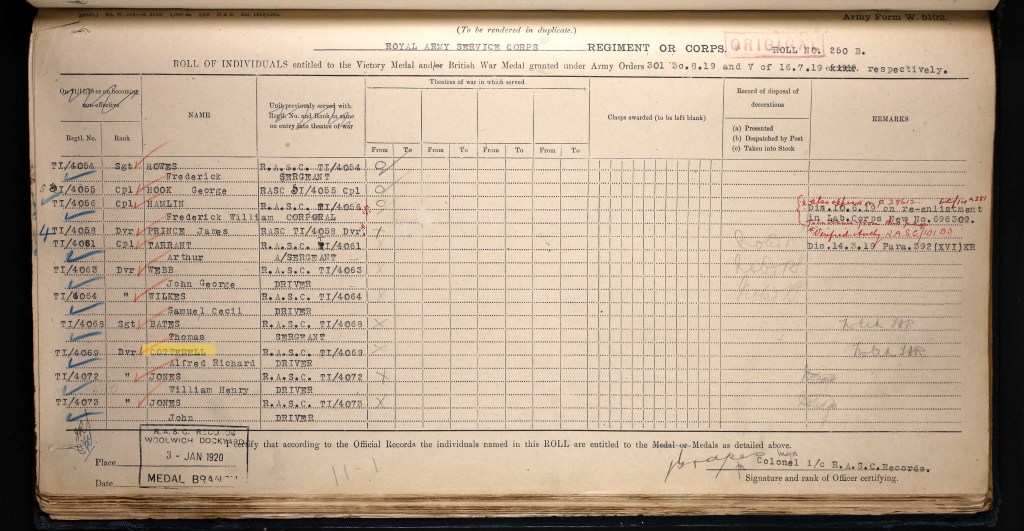 Army Form W. 5102.
(To be rendered in duplicate.)
ROYAL ARMY SERVICE CORPS REGIMENT OR CORPS. ROLL NO. 250 B.
ORIGINAL
ROLL OF INDIVIDUALS entitled to the Victory Medal and/or British War Medal granted under Army Orders 301 30.8.19 and V of 16.7.19 respectively.
On 11/11/18 or on becoming non-effective
Unit previously served with. Regtl. No. and Rank in same on entry into theatre of war
Theatres of war in which served
Record of disposal of decorations
NAME
Clasps awarded (to be left blank)
(a) Presented
(b) Despatched by Post
(c) Taken into Stock
REMARKS
Regtl. No. Rank
From To From To From To From To
TI/4054 Sgt HOWES R.A.S.C. TI/4054
Frederick SERGEANT
TI/4055 Cpl HOOK George RASC TI/4055 Cpl
TI/4056 Cpl HAMLIN R.A.S.C. TI/4056
Dis.10.5.19 on re-enlistment
Frederick William CORPORAL in Lab.Corps New No.696309.
TI/4058 Dvr PRINCE James RASC TI/4058 Dvr.
TI/4061 Cpl TARRANT R.A.S.C. TI/4061 Dis.14.3.19 Para.392(XVI)KR
Arthur A/SERGEANT
TI/4063 Dvr WEBB R.A.S.C. TI/4063
John George DRIVER
TI/4064 " WILKES R.A.S.C. TI/4064
Samuel Cecil DRIVER
TI/4068 Sgt BATES R.A.S.C. TI/4068
Thomas SERGEANT
TI/4069 Dvr COTTERELL R.A.S.C. TI/4069
Alfred Richard DRIVER
TI/4072 " JONES R.A.S.C. TI/4072
William Henry DRIVER
TI/4073 " JONES R.A.S.C. TI/4073
John DRIVER
I certify that according to the Official Records the individuals named in this ROLL are entitled to the Medal or Medals as detailed above.
R.A.S.C. RECORDS
WOOLWICH DOCKYARD
3 - JAN 1920
MEDAL BRANCH
Place
Date
11-1
Major
Colonel i/c R.A.S.C.Records.
Signature and rank of Officer certifying.